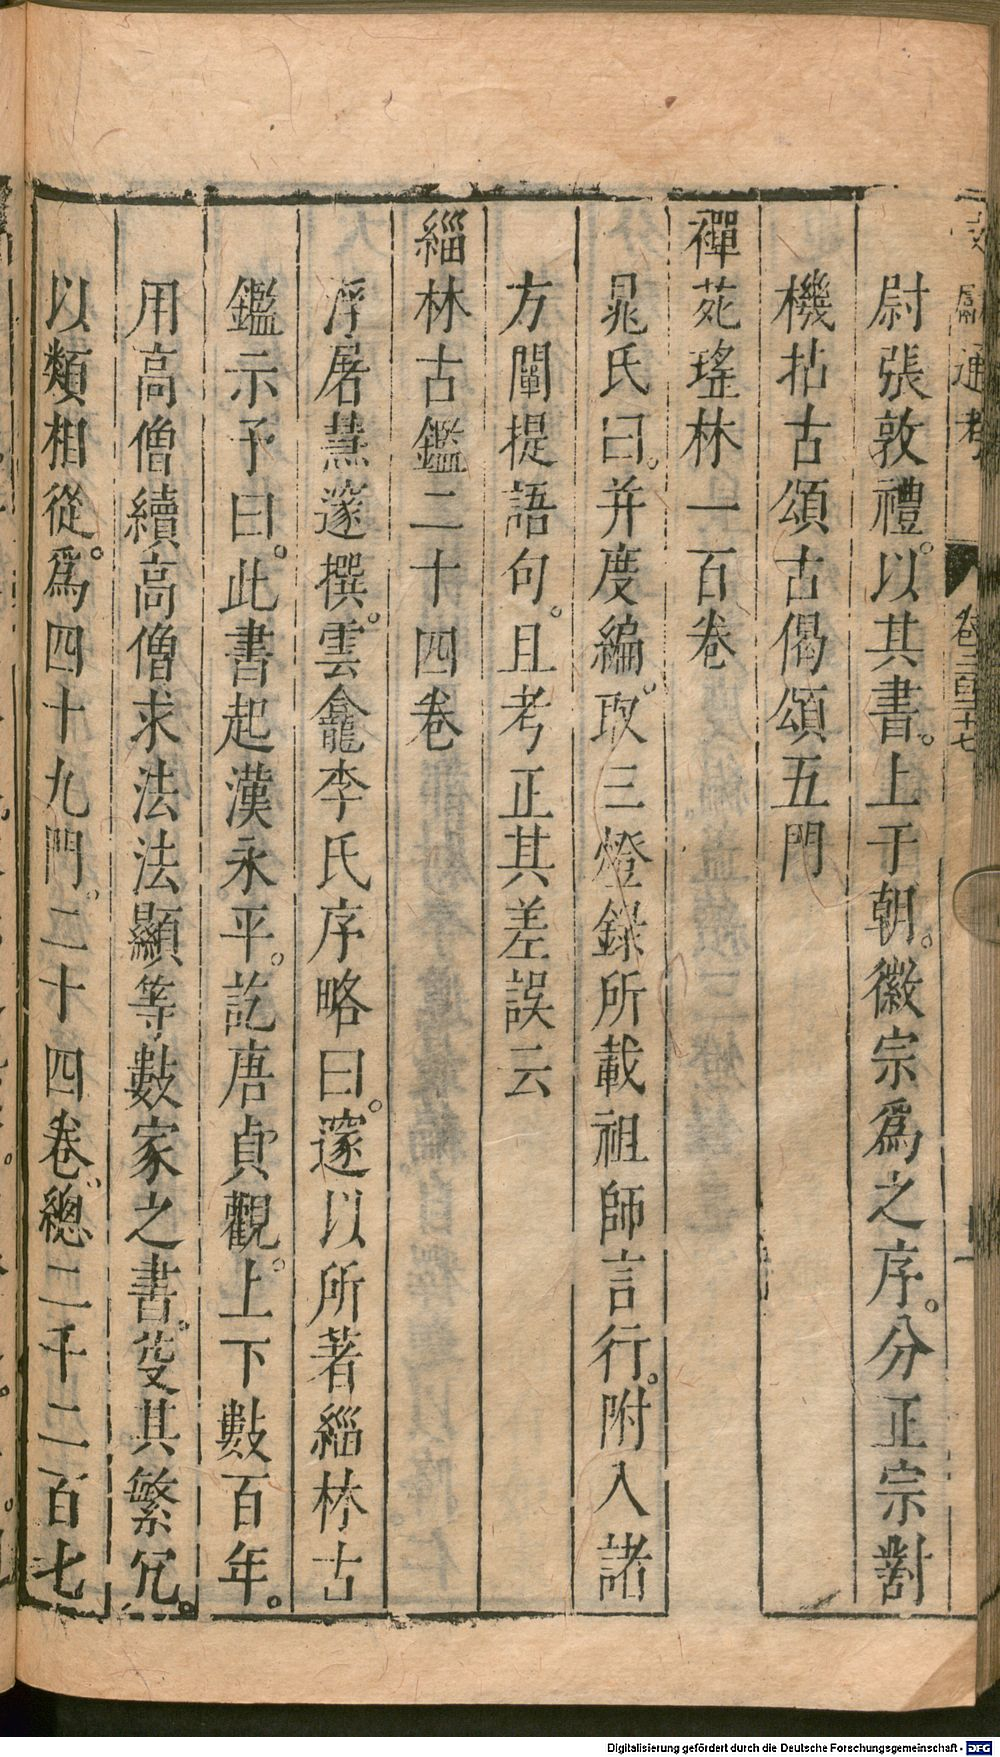 文獻通考 卷二百二十七
尉張敦禮。以其書。上于朝。徽宗爲之序。分正宗對
機拈古頌古偈頌五門
禪苑瑤林一百卷
晁氏曰。并度編。取三燈錄所載祖師言行。附入諸
方闡提語句。且考正其差誤云
緇林古鑑二十四卷
浮屠慧邃撰。雲龕李氏序略曰。邃以所著緇林古
鑑示予曰。此書起漢永平。訖唐貞觀。上下數百年。
用高僧續高僧求法法顯等數家之書。芟其繁冗。
以類相從。爲四十九門。二十四卷。總二千二百七
Digitalisierung gefördert durch die Deutsche Forschungsgemeinschaft - DFG